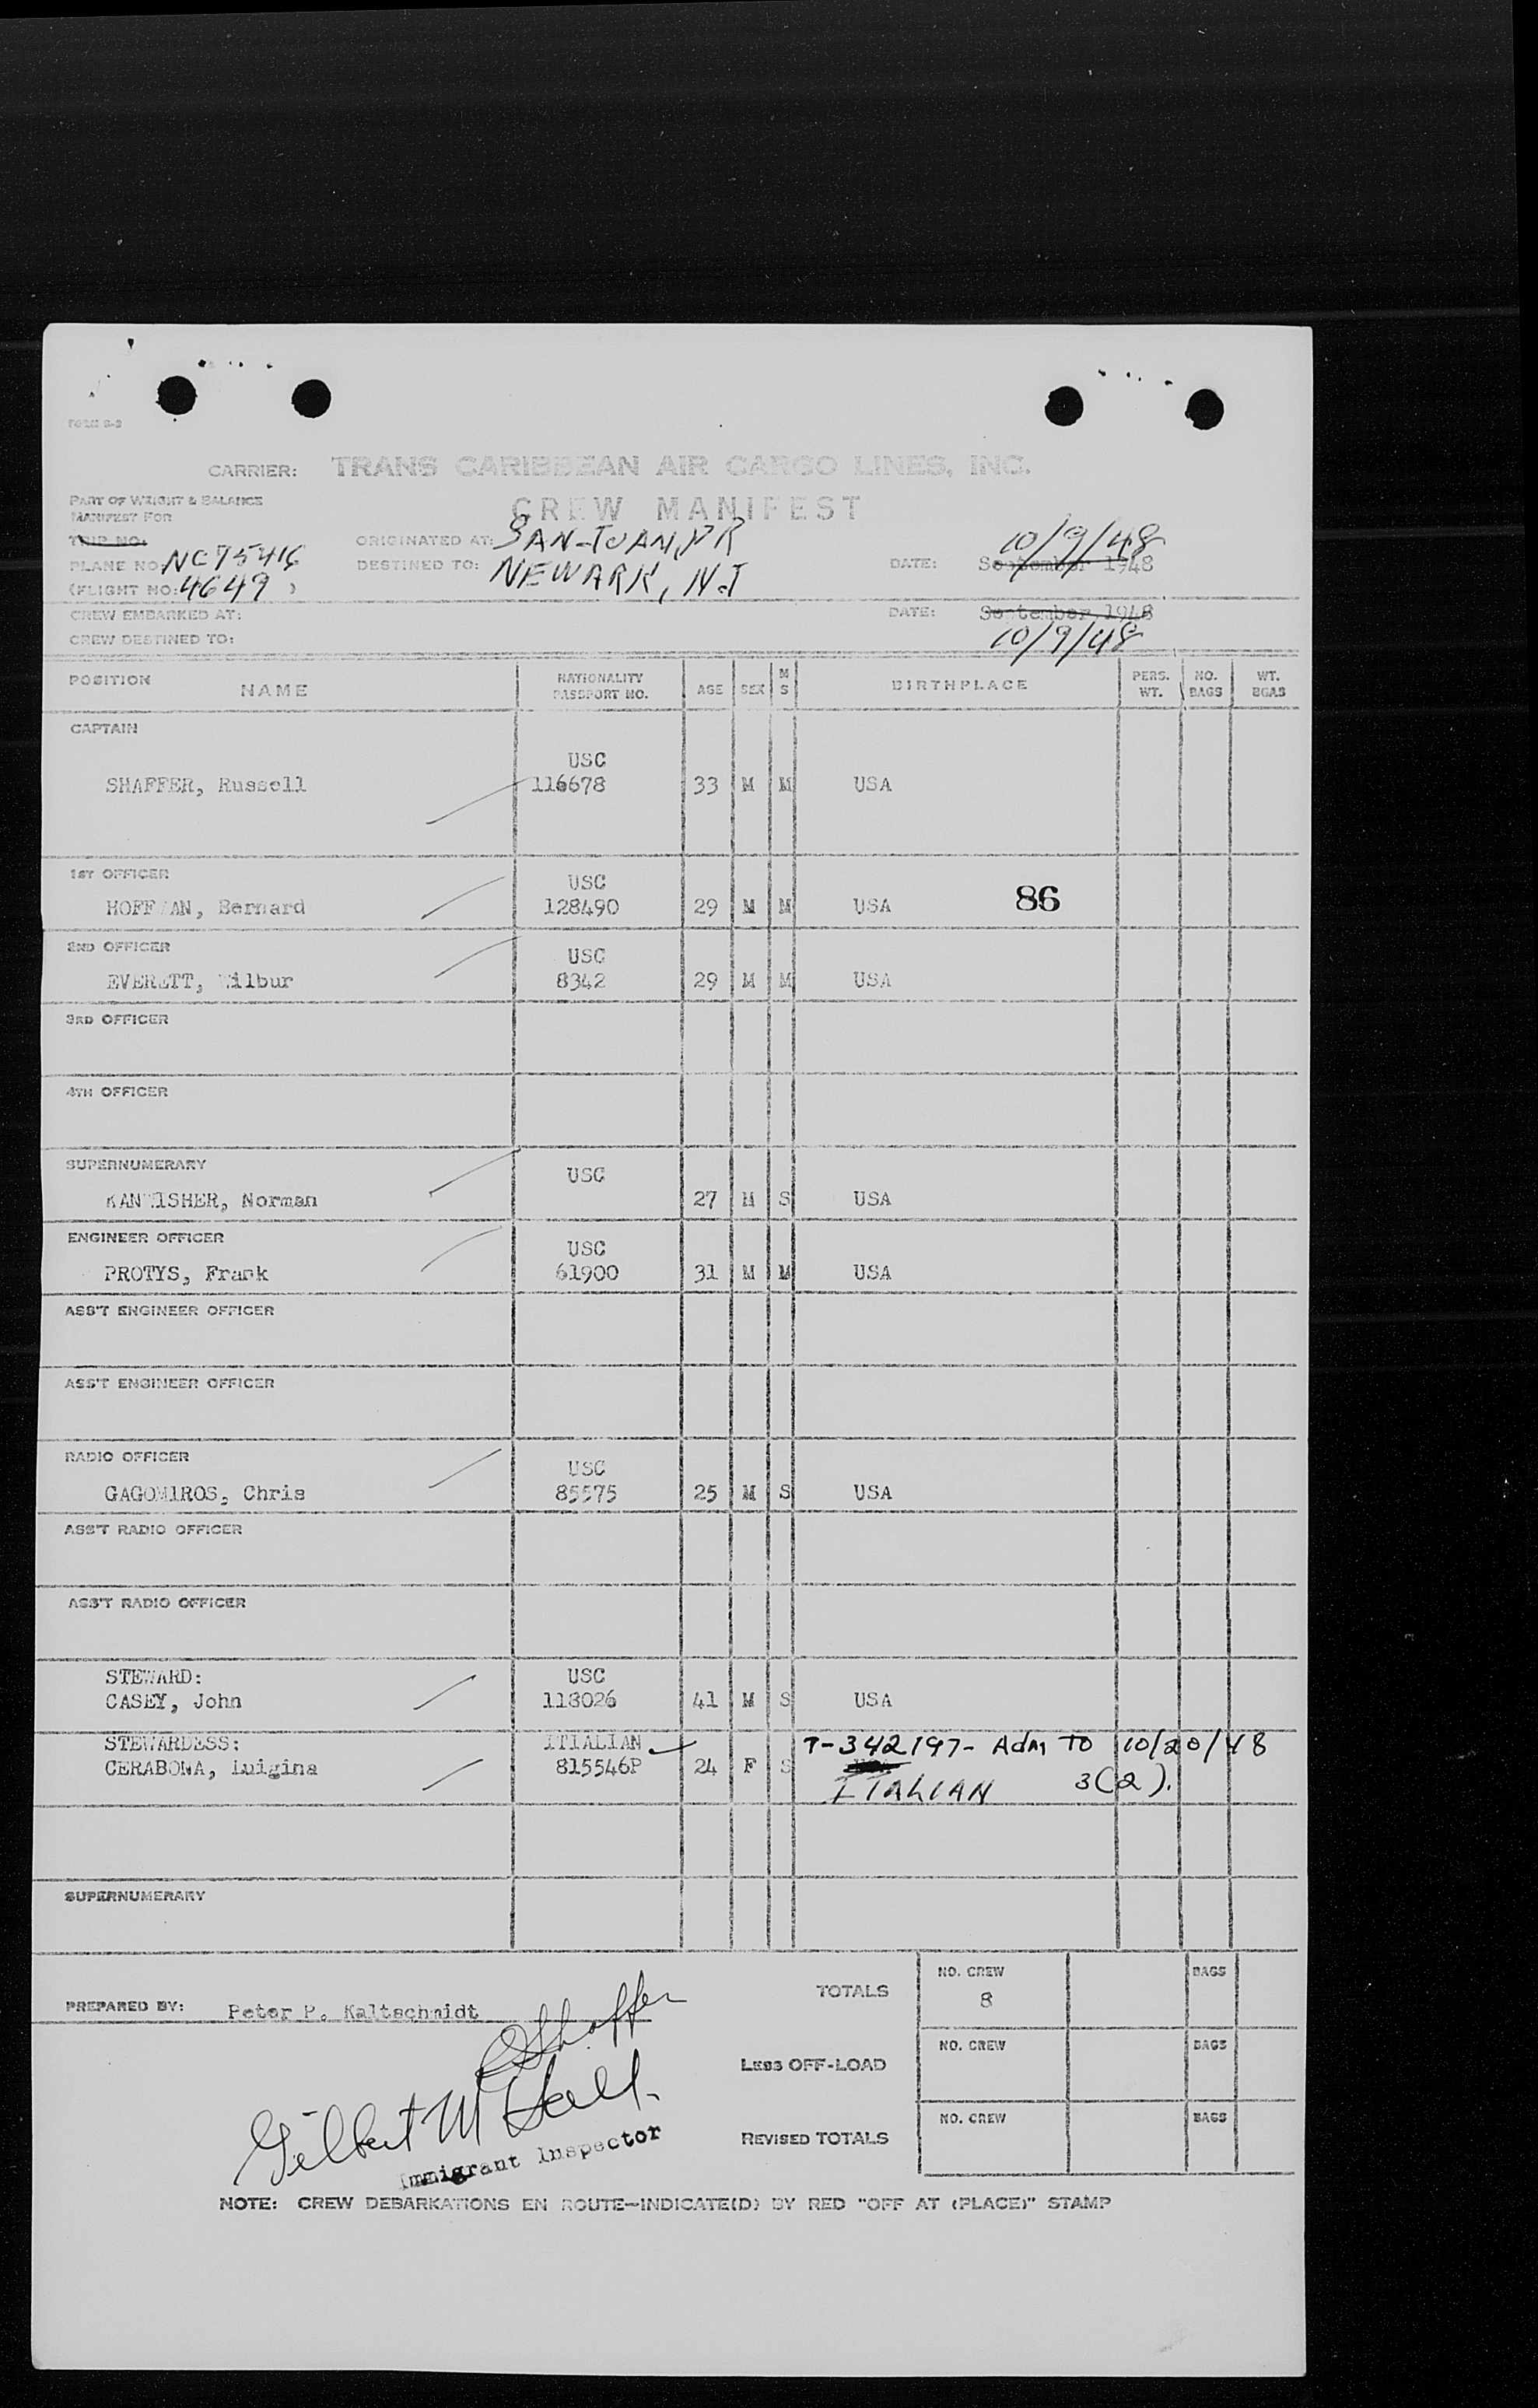 FORM R-2
CARRIER: TRANS CARIBBEAN AIR CARGO LINES, INC.
PART OF WEIGHT & BALANCE
MANIFEST FOR
CREW MANIFEST
TRIP NO:
ORIGINATED AT: SAN-JUAN, PR
10/9/48
PLANE NO: NC75416
DESTINED TO: NEWARK, N.J
DATE: September 1948
(FLIGHT NO: 4649 )
CREW EMBARKED AT:
DATE: September 1948
CREW DESTINED TO:
10/9/48
POSITION NAME NATIONALITY PASSPORT NO. AGE SEX M S BIRTHPLACE PERS. WT. NO. BAGS WT. BGAS
CAPTAIN
USC
SHAFFER, Russell 116678 33 M M USA
1ST OFFICER USC
HOFFMAN, Bernard 128490 29 M M USA 86
2ND OFFICER USC
EVERETT, Wilbur 8342 29 M M USA
3RD OFFICER
4TH OFFICER
SUPERNUMERARY USC
Norman 27 M S USA
ENGINEER OFFICER USC
PROTYS, Frank 61900 31 M M USA
ASS'T ENGINEER OFFICER
ASS'T ENGINEER OFFICER
RADIO OFFICER USC
GAGOMIROS, Chris 85575 25 M S USA
ASS'T RADIO OFFICER
ASS'T RADIO OFFICER
STEWARD: USC
CASEY, John 118026 41 M S USA
STEWARDESS: ITIALIAN T-342197- Adm TO 10/20/48
CERABONA, Luigina 815546P 24 F S ITALIAN 3(2).
SUPERNUMERARY
PREPARED BY: Peter P. Kaltschmidt
TOTALS NO. CREW 8 BAGS
R Shaffer
LESS OFF-LOAD NO. CREW BAGS
Gilbert M
REVISED TOTALS NO. CREW BAGS
Immigrant Inspector
NOTE: CREW DEBARKATIONS EN ROUTE—INDICATE(D) BY RED "OFF AT (PLACE)" STAMP